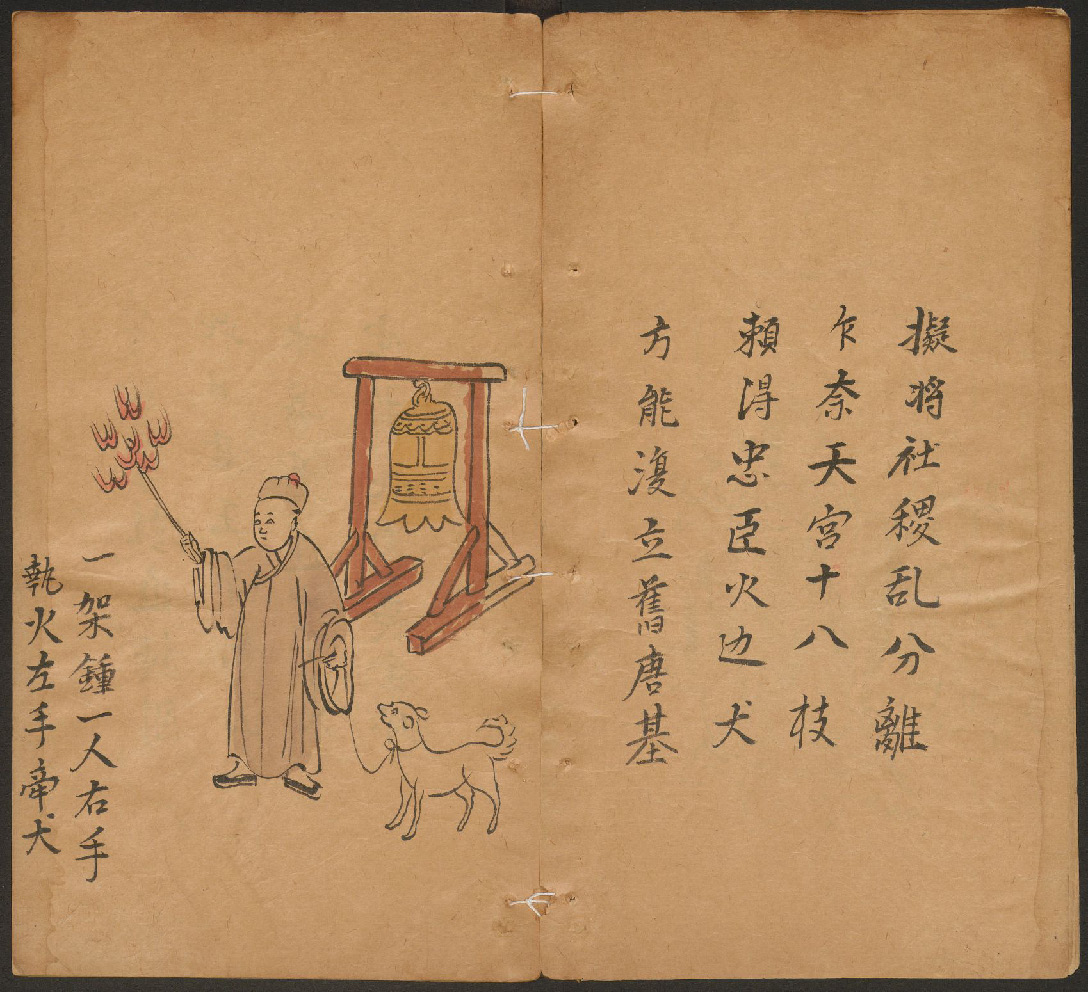 擬將社稷乱分離
乍奈天宮十八枝
賴得忠臣火边犬
方能復立舊唐基
一架鍾一人右手
執火左手牽犬